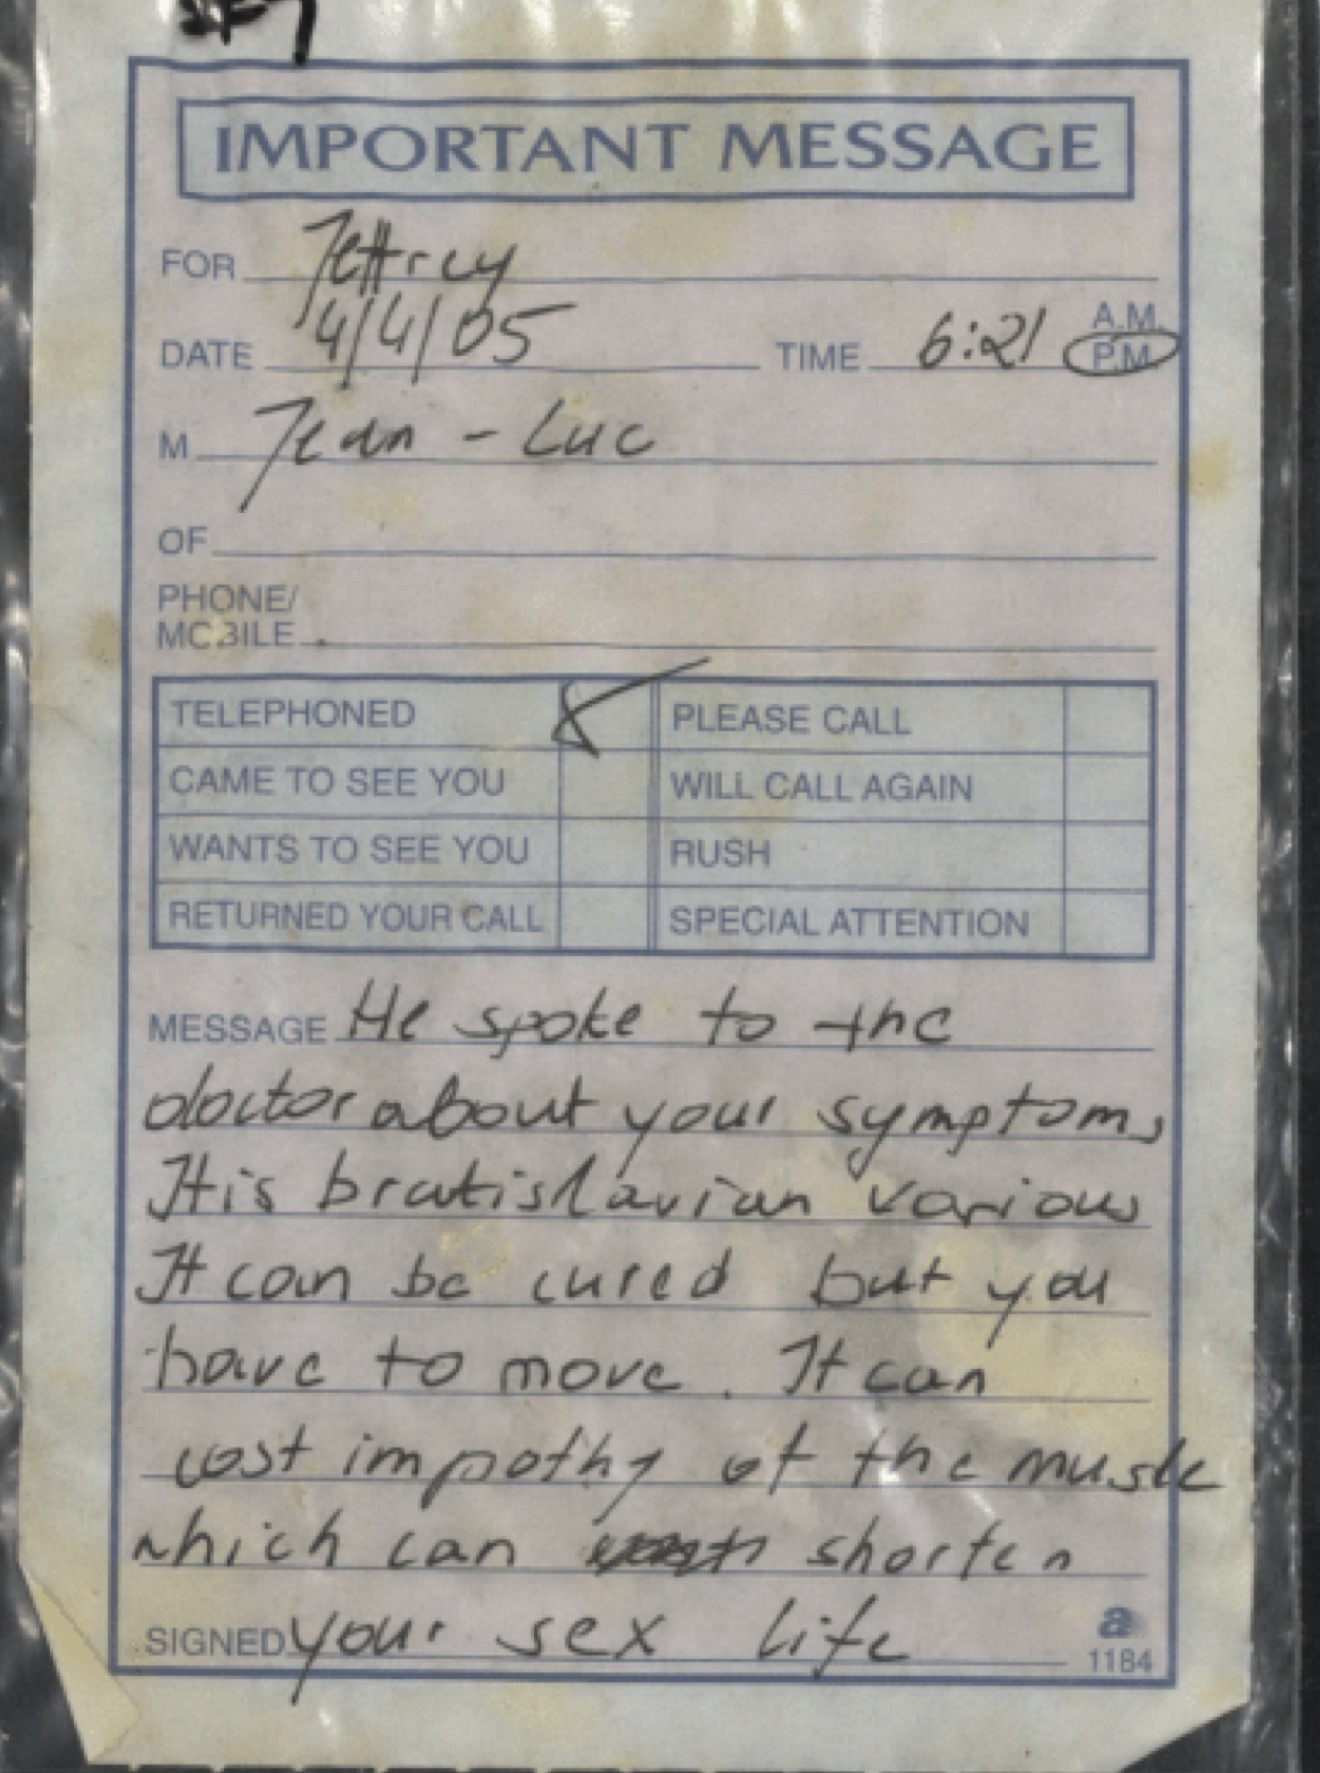 IMPORTANT MESSAGE
FOR Jeffrey
DATE 4/4/05 TIME 6:21 A.M.
P.M.
M Jean - Luc
OF
PHONE/
MOBILE
TELEPHONED PLEASE CALL
CAME TO SEE YOU WILL CALL AGAIN
WANTS TO SEE YOU RUSH
RETURNED YOUR CALL SPECIAL ATTENTION
MESSAGE He spoke to the
doctor about your symptoms
It is bratislavian various
It can be cured but you
have to move. It can
cost impathy of the muscle
which can shorten
SIGNED your sex life
a
1184